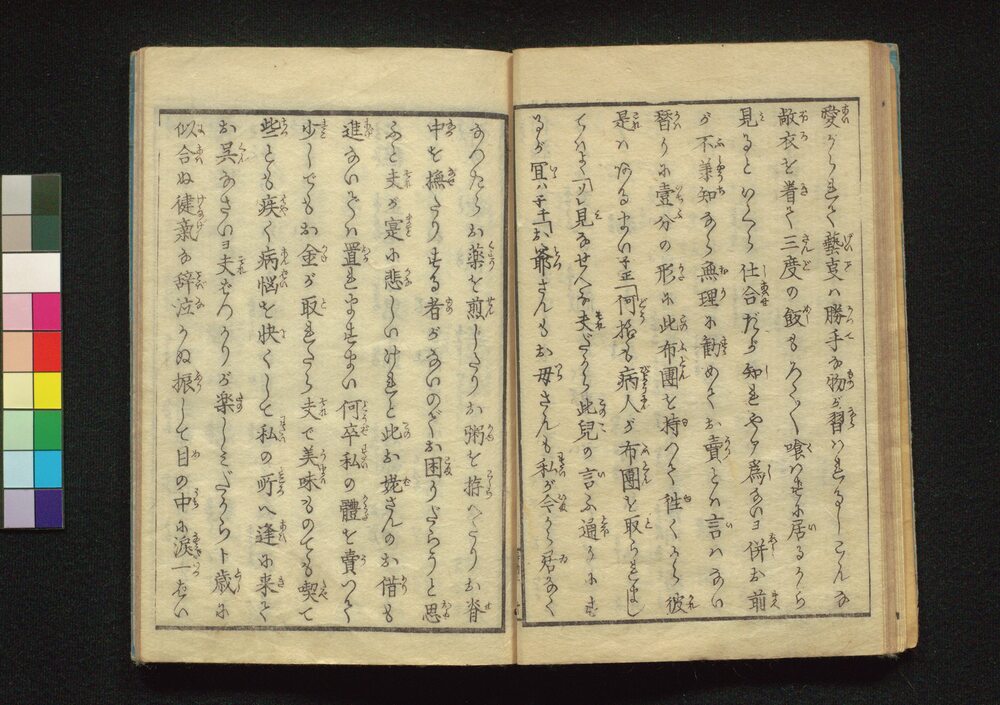 愛がられて藝亊ハ勝手な物が習ハれるしこんな
敝衣を着て三度の飯もろくろく喰ハせに居るから
見るといくら仕合だか知れやア為ないヨ併お前
が不兼知なら無理に勧めてお賣とハ言ハない
替りに壹分の形に此布團を持つて徃くから彼
是ハなるまいネ正「何指も病人が布團を取られまし
てハよく「ソレ見なせへな夫だから此兒の言ふ通りにす
るが冝ハネ千「お爺さんもお母さんも私が今から居なく
なつたらお薬を煎じたりお粥を拵へたりお脊
中を撫たりする者がないのでお困りだらうと思
ふと夫が寔に悲しいけれど此お姥さんのお借も
進ないでハ置れますまい何卒私の體を賣つて
少しでもお金が取れたら夫で美味ものでも喫て
些とも疾く病悩を快くして私の所へ逢に来て
お呉なさいヨ夫ばつかりが楽しみだからト歳に
似合ぬ徤氣な辞泣かぬ振して目の中に涙一ぱい